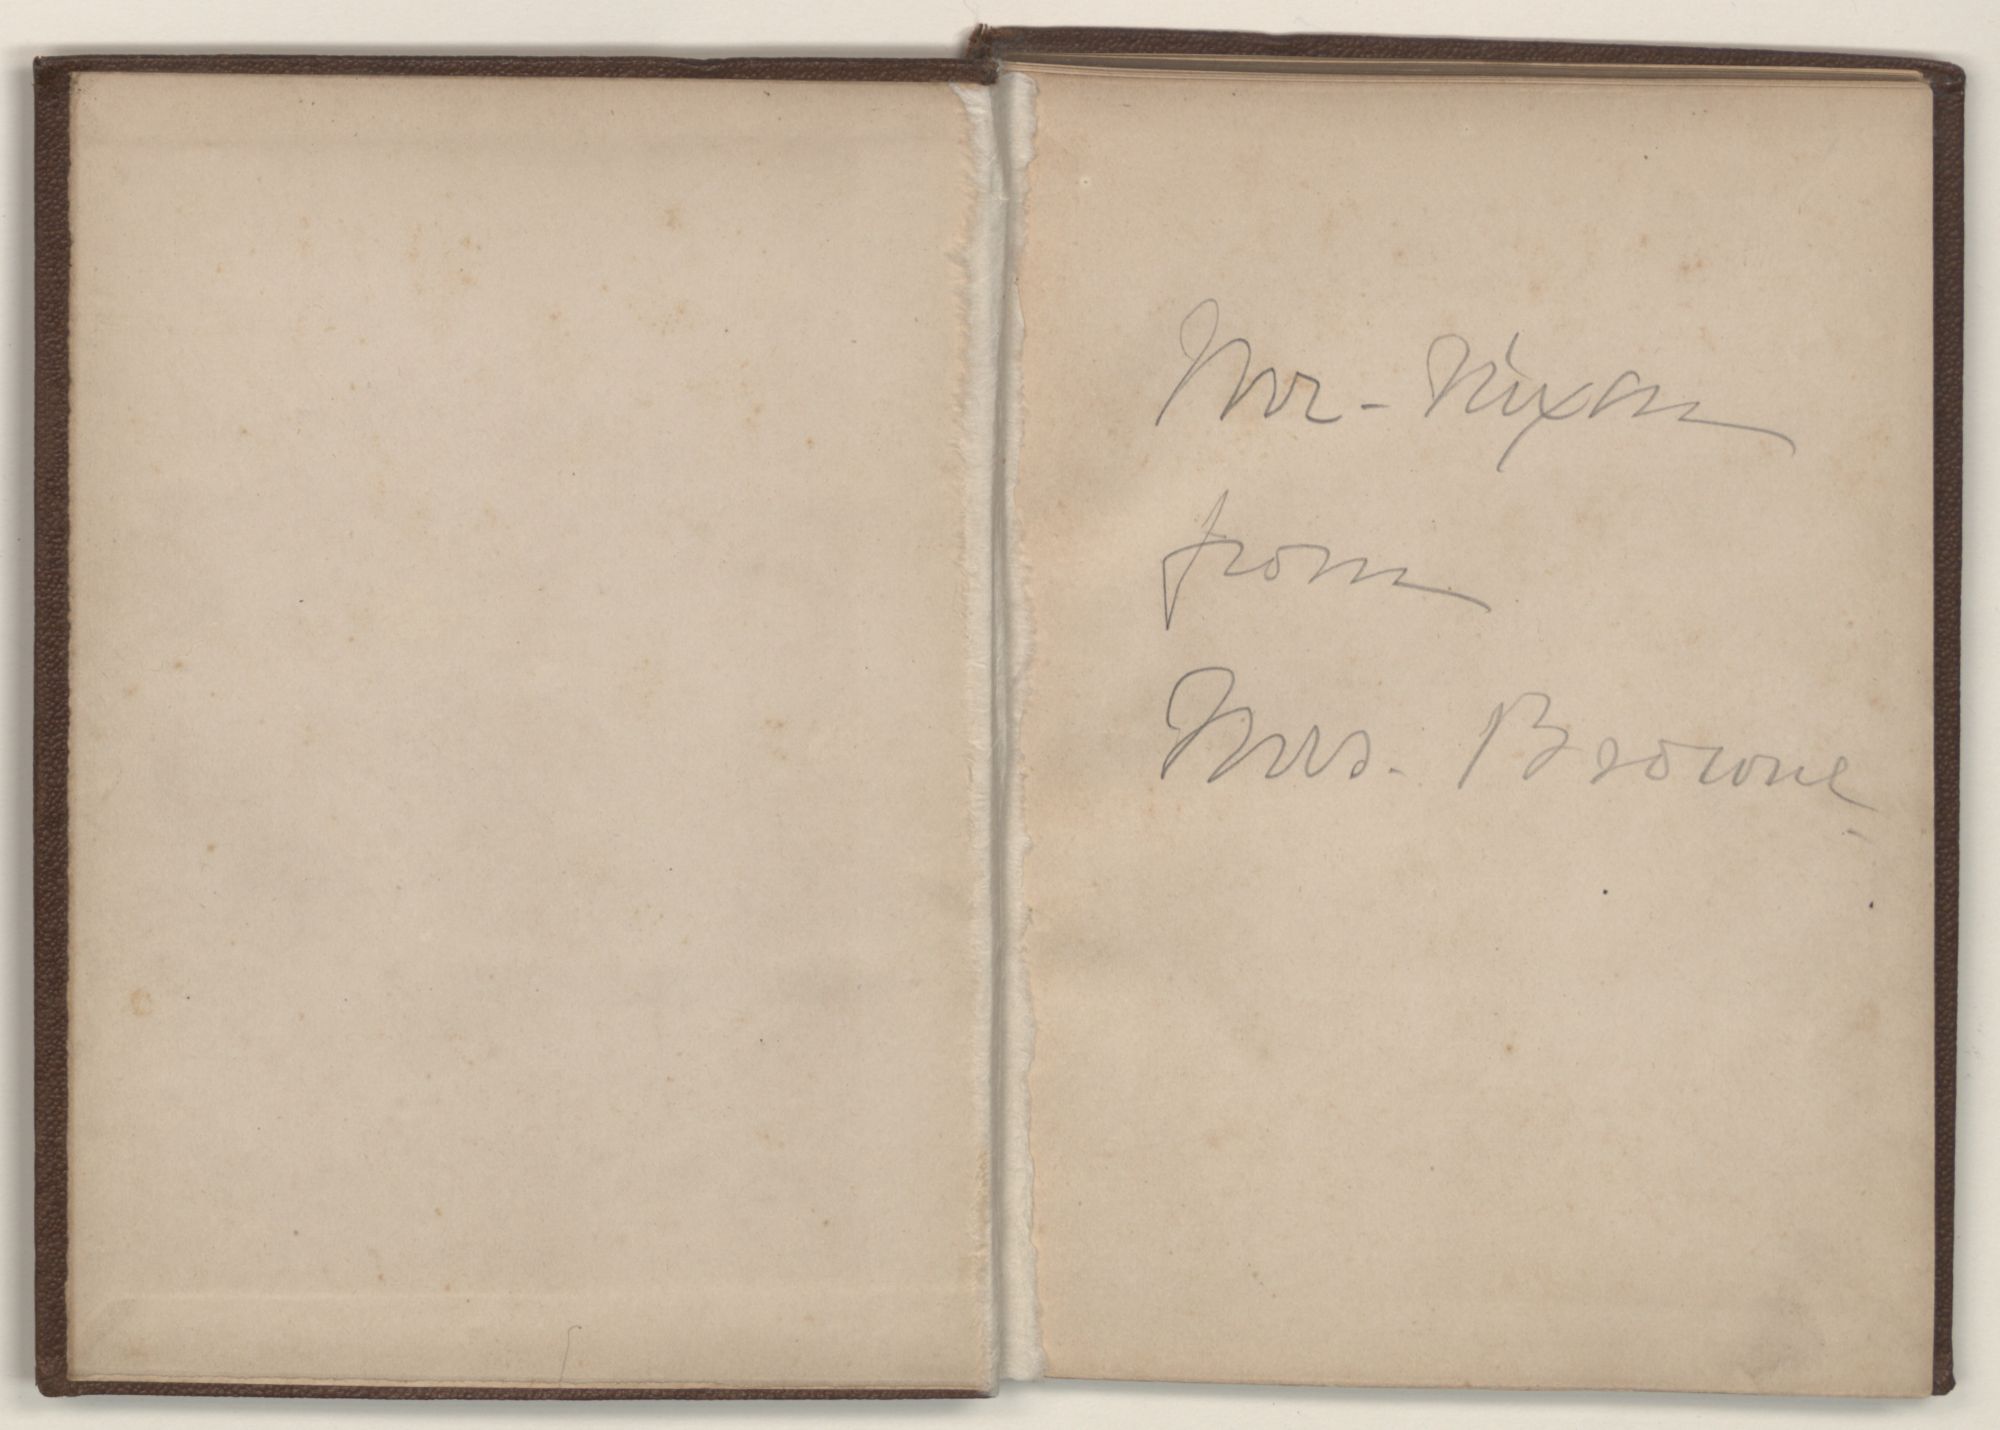 Mr - Nixon
from
Mrs. Browne